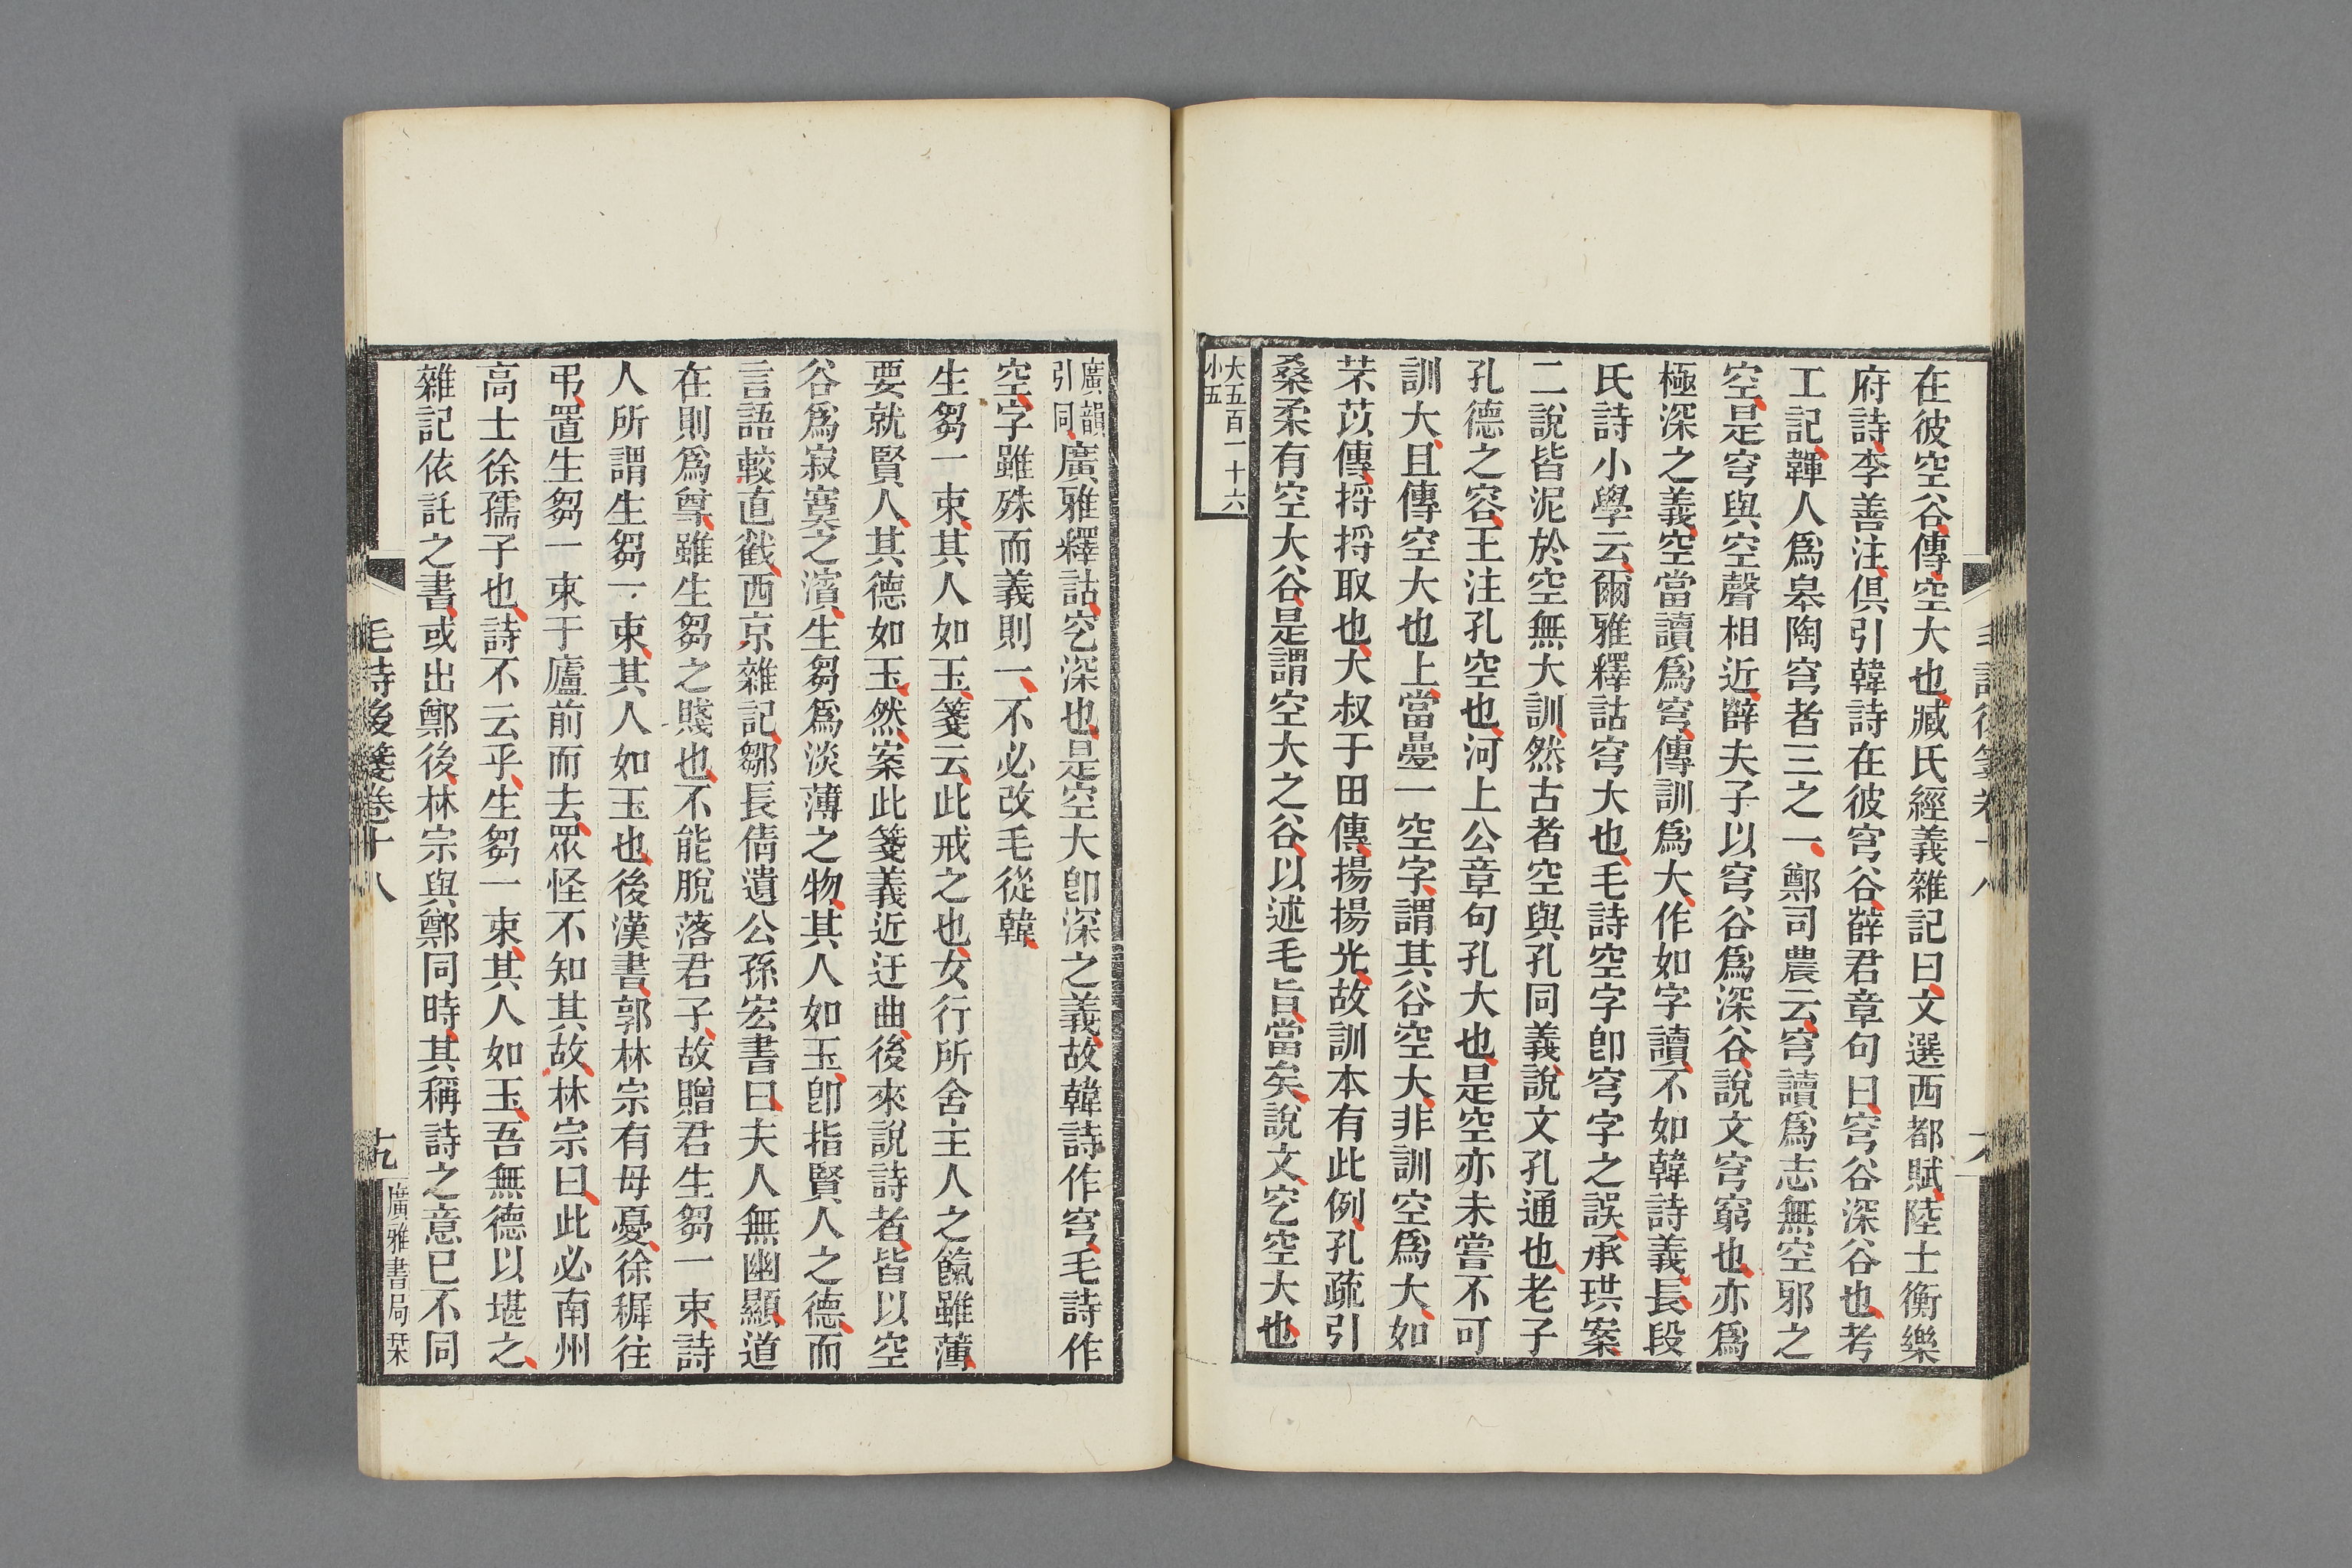 毛詩後箋卷十八
在彼空谷傳空大也臧氏經義雜記曰文選西都賦陸士衡樂
府詩李善注俱引韓詩在彼穹谷薛君章句曰穹谷深谷也考
工記韗人爲皋陶穹者三之一鄭司農云穹讀爲志無空邪之
空是穹與空聲相近薛夫子以穹谷爲深谷說文穹窮也亦爲
極深之義空當讀爲穹傳訓爲大作如字讀不如韓詩義長段
氏詩小學云爾雅釋詁穹大也毛詩空字卽穹字之誤承珙案
二說皆泥於空無大訓然古者空與孔同義說文孔通也老子
孔德之容王注孔空也河上公章句孔大也是空亦未嘗不可
訓大且傳空大也上當疊一空字謂其谷空大非訓空爲大如
芣苢傳捋捋取也大叔于田傳揚揚光故訓本有此例孔疏引
桑柔有空大谷是謂空大之谷以述毛旨當矣說文穵空大也
大五百一十六
小五
廣韻
引同廣雅釋詁穵深也是空大卽深之義故韓詩作穹毛詩作
空字雖殊而義則一不必改毛從韓
生芻一束其人如玉箋云此戒之也女行所舍主人之餼雖薄
要就賢人其德如玉然案此箋義近迂曲後來說詩者皆以空
谷爲寂寞之濱生芻爲淡薄之物其人如玉卽指賢人之德而
言語較直截西京雜記鄒長倩遺公孫宏書曰夫人無幽顯道
在則爲尊雖生芻之賤也不能脫落君子故贈君生芻一束詩
人所謂生芻一束其人如玉也後漢書郭林宗有母憂徐穉往
弔置生芻一束于廬前而去眾怪不知其故林宗曰此必南州
高士徐孺子也詩不云乎生芻一束其人如玉吾無德以堪之
雜記依託之書或出鄭後林宗與鄭同時其稱詩之意已不同
毛詩後箋卷十八
十九
廣雅書局栞